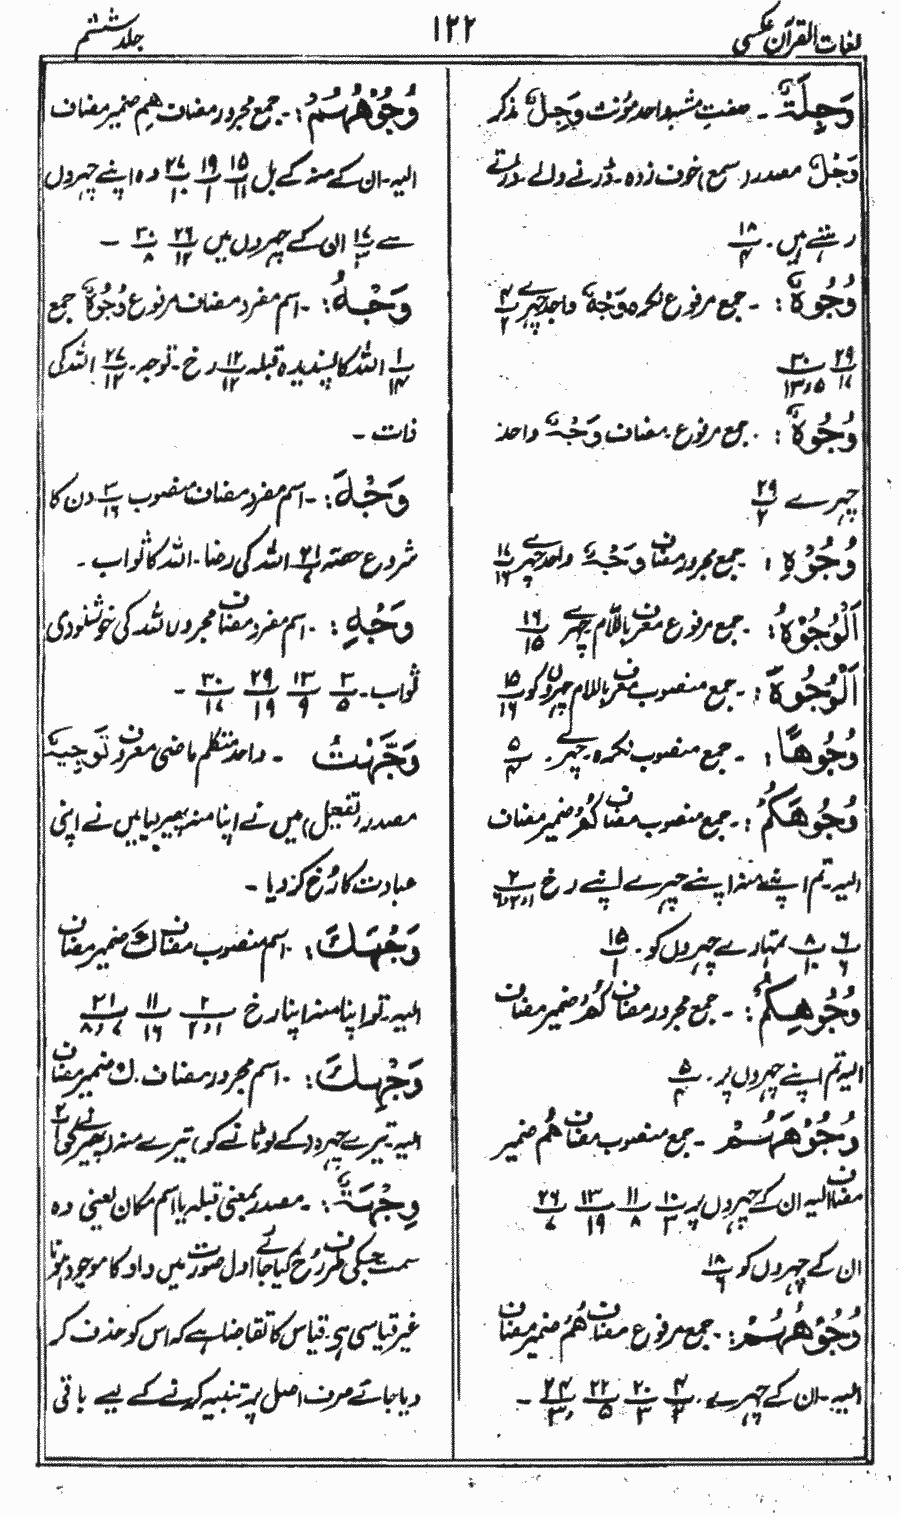 لغات القرآن عکسی
۱۲۲
جلد ششم
وَجِلَةٌ ۔ صفتِ مشبہ واحد مؤنث وَجِلٌ مذکر
وَجَلٌ مصدر (سمع) خوف زدہ ۔ ڈرنے والے ۔ ڈرتے
رہتے ہیں ۔ ۱۸/۴
وُجُوْہٌ : ۔ جمع مرفوع نکرہ وَجْہٌ واحد چہرے ۴/۲
۲۹/۱۷ ۳۰/۱۳،۵
وُجُوْہٌ : ۔ جمع مرفوع ۔ مضاف وَجْہٌ واحد
چہرے ۲۹/۲
وُجُوْہِ : جمع مجرور مضاف وَجْہٌ واحد چہرے ۱۷/۱۶
اَلْوُجُوْہُ : ۔ جمع مرفوع معرف باللّام چہرے ۱۶/۱۵
اَلْوُجُوْہَ : ۔ جمع منصوب معرف باللام چہروں کو ۱۵/۱۶
وُجُوْھًا : ۔ جمع منصوب نکرہ ۔ چہرے ۔ ۵/۴
وُجُوْھَکُمْ : ۔ جمع منصوب مضاف کُمْ ضمیر مضاف
الیہ ۔ تم اپنے منہ اپنے چہرے اپنے رخ ۲/۱،۲،۶
۶/۶ ۸/۱۰ تمہارے چہروں کو ۔ ۱۵/۱
وُجُوْھِکُمْ : ۔ جمع مجرور مضاف کُمْ ضمیر مضاف
الیہ تم اپنے چہروں پر ۔ ۵/۴
وُجُوْھَہُمْ ۔ جمع منصوب مضاف ھُمْ ضمیر
مضاف الیہ ان کے چہروں پر ۱۰/۳ ۱۱/۸ ۱۳/۱۹ ۲۶/۷
ان کے چہروں کو ۱۸/۶
وُجُوْھُہُمْ : ۔ جمع مرفوع مضاف ھُمْ ضمیر مضاف
الیہ ۔ ان کے چہرے ۔ ۴/۲ ۲۰/۳ ۲۲/۵ ۲۴/۳، ۔
وُجُوْھِہِمْ : ۔ جمع مجرور مضاف ھِم ضمیر مضاف
الیہ ۔ ان کے منہ کے بل ۱۵/۱۱ ۱۹/۱ ۲۷/۱۰ وہ اپنے چہروں
سے ۱۷/۳ ان کے چہروں میں ۲۶/۱۲ ۳۰/۸ ۔
وَجْہُ : ۔ اسم مفرد مضاف مرفوع وُجُوْہٌ جمع
۱/۱۴ اللہ کا پسندیدہ قبلہ ۱۲/۱۲ رخ ۔ توجہ ۔ ۲۷/۱۲ اللہ کی
ذات ۔
وَجْہَ : ۔ اسم مفرد مضاف منصوب ۳/۱۶ دن کا
شروع حصّہ ۲۱/۷ اللہ کی رضا ۔ اللہ کا ثواب ۔
وَجْہِ : ۔ اسم مفرد مضاف مجرور اللہ کی خوشنودی
ثواب ۔ ۳/۵ ۱۳/۹ ۲۹/۱۹ ۳۰/۱۷ ۔
وَجَّہْتُ ۔ واحد متکلم ماضی معروف تَوْجِیْہٌ
مصدر (تفعیل) میں نے اپنا منہ پھیر لیا میں نے اپنی
عبادت کا رُخ کر دیا ۔
وَجْہَكَ : ۔ اسم منصوب مضاف كَ ضمیر مضاف
الیہ ۔ تو اپنا منہ اپنا رخ ۲/۱،۲ ۱۱/۱۶ ۲۱/۷،۸
وَجْہِكَ : ۔ اسم مجرور مضاف ۔ ك ضمیر مضاف
الیہ ۔ تیرے چہرہ (کے لوٹانے کو) تیرے منہ (پھیرنے کو) ۲
وِجْہَةٌ : ۔ مصدر بمعنی قبلہ یا اسم مکان یعنی وہ
سمت جسکی طرف رُخ کیا جائے اول صورت میں واو کا موجود ہونا
غیر قیاسی ہی ۔ قیاس کا تقاضا ہے کہ اس کو حذف کر
دیا جائے صرف اصل پر تنبیہ کرنے کے لیے باقی